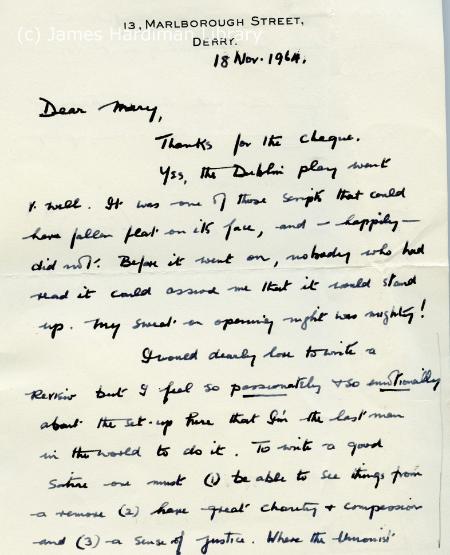 13, MARLBOROUGH STREET,
(c) James Hardiman Library
DERRY.
18 Nov. 1964.
Dear Mary,
Thanks for the cheque.
Yes, the Dublin play went
v. well. It was one of those scripts that could
have fallen flat on its face, and - happily -
did not. Before it went on, nobody who had
read it could assure me that it would stand
up. My sweat on opening night was mighty!
I would dearly love to write a
Review but I feel so passionately & so emotionally
about the set-up here that I'm the last man
in the world to do it. To write a good
satire one must (1) be able to see things from
a remove (2) have great charity & compassion
and (3) a sense of justice. Where the Unionist